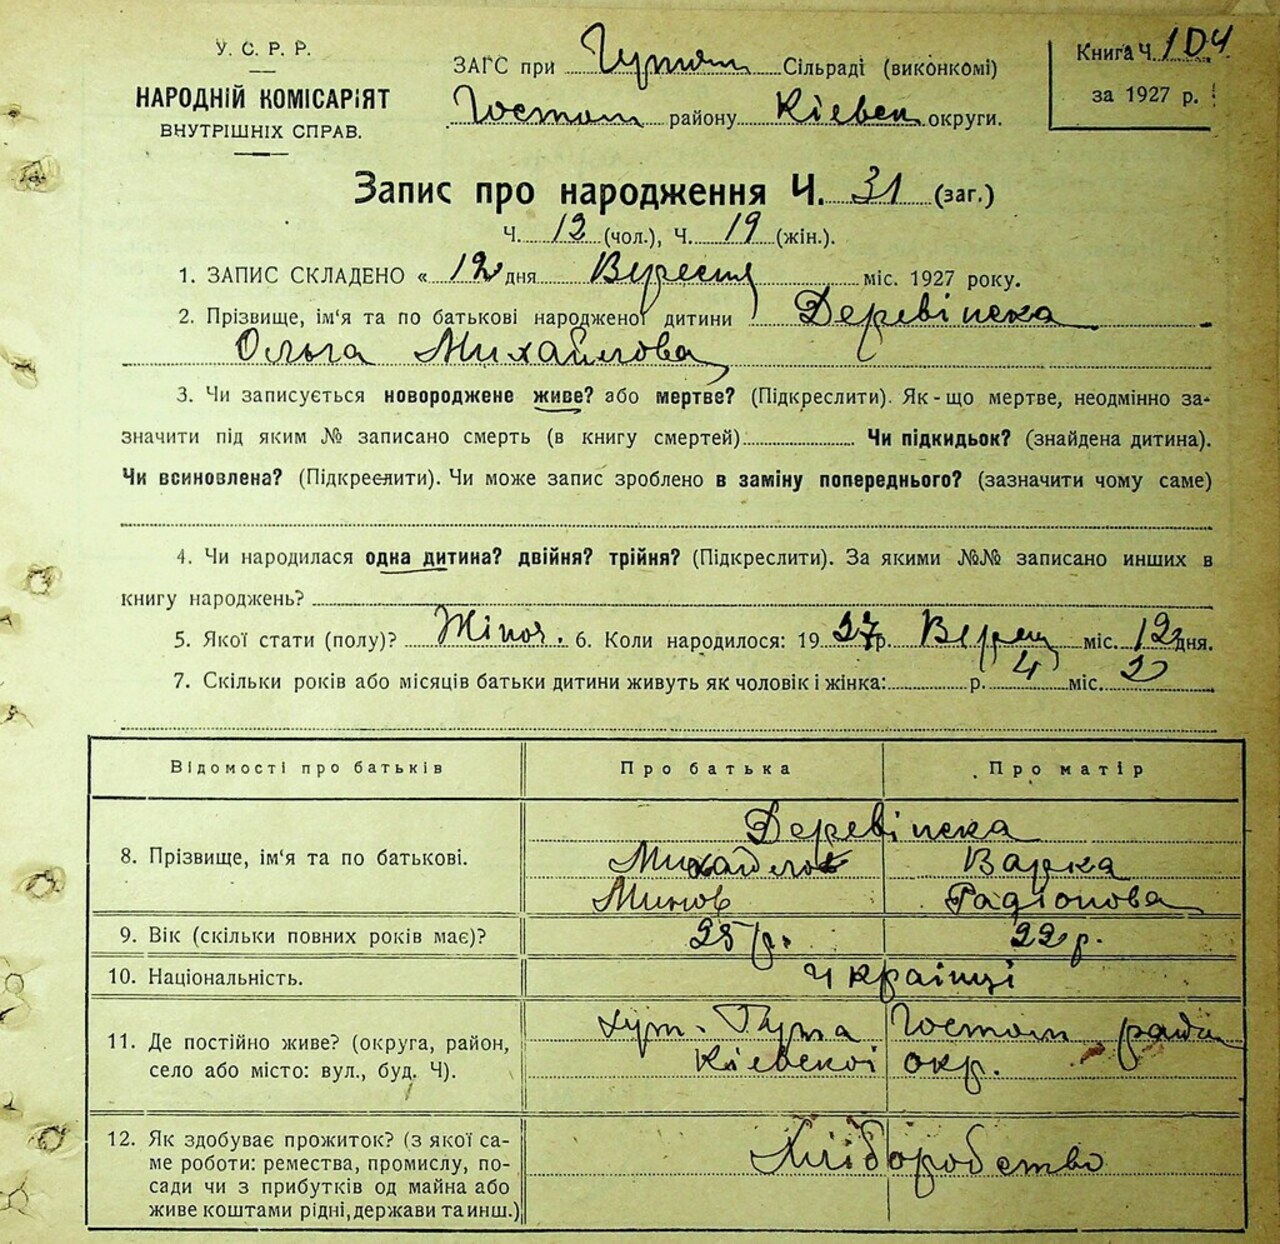 У. С. Р. Р.
НАРОДНІЙ КОМІСАРІЯТ
ВНУТРІШНІХ СПРАВ.
ЗАГС при Гутян Сільраді (виконкомі)
Гостом районy Кіевск округи.
Книга Ч. 104
за 1927 р.
Запис про народження Ч. 31 (заг.)
Ч. 12 (чол.), Ч. 19 (жін.).
1. ЗАПИС СКЛАДЕНО « 12 дня Вересня міс. 1927 року.
2. Прізвище, ім'я та по батькові народженої дитини Деревінска
Ольга Михайлова
3. Чи записується новороджене живе? або мертве? (Підкреслити). Як-що мертве, неодмінно за-
значити під яким № записано смерть (в книгу смертей) Чи підкидьок? (знайдена дитина).
Чи всиновлена? (Підкреслити). Чи може запис зроблено в заміну попереднього? (зазначити чому саме)
4. Чи народилася одна дитина? двійня? трійня? (Підкреслити). За якими №№ записано инших в
книгу народжень?
5. Якої стати (полу)? Жіноч. 6. Коли народилося: 1927 р. Верес міс. 12 дня.
7. Скільки років або місяців батьки дитини живуть як чоловік і жінка: р. 4 міс. 2
Відомості про батьків Про батька Про матір
Деревінска
8. Прізвище, ім'я та по батькові. Михайло Варка
Минов Радіонова
9. Вік (скільки повних років має)? 25 р. 22 р.
10. Національність. Українці
11. Де постійно живе? (округа, район, хут. Гута Гостом рада
село або місто: вул., буд. Ч). Кіевскоі окр.
12. Як здобуває прожиток? (з якої са-
ме роботи: ремества, промислу, по- Хліборобство
сади чи з прибутків од майна або
живе коштами рідні, держави та инш.)